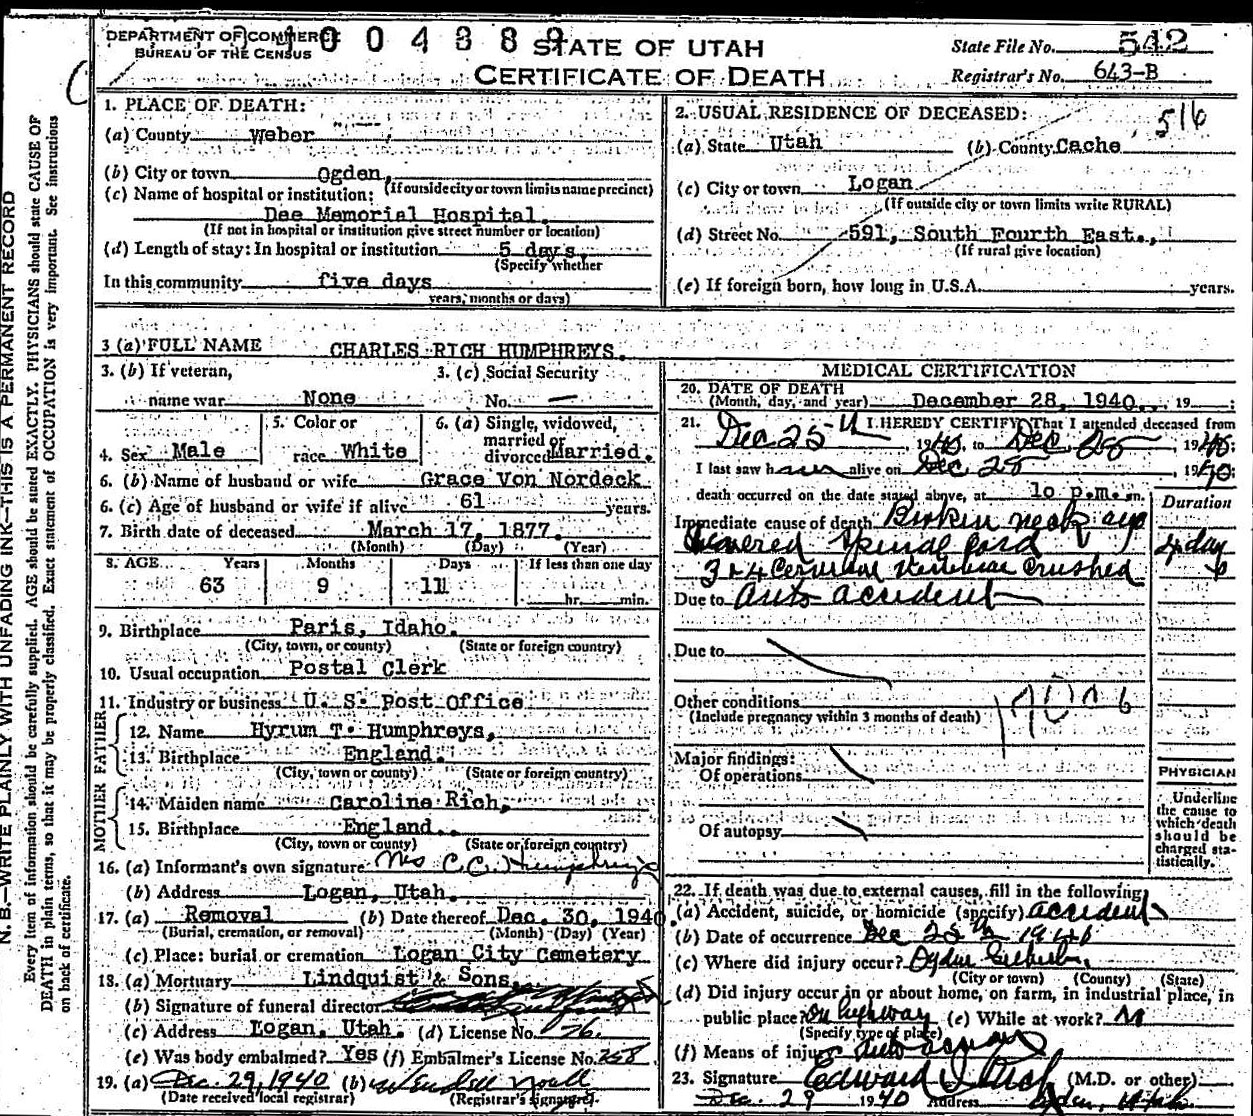 DEPARTMENT OF COMMERCE
BUREAU OF THE CENSUS
STATE OF UTAH
CERTIFICATE OF DEATH
State File No. 542
Registrar's No. 643-B
1. PLACE OF DEATH:
(a) County Weber
(b) City or town Ogden,
(If outside city or town limits name precinct)
(c) Name of hospital or institution:
Dee Memorial Hospital.
(If not in hospital or institution give street number or location)
(d) Length of stay: In hospital or institution 5 days.
(Specify whether
In this community five days
years, months or days)
2. USUAL RESIDENCE OF DECEASED: 516
(a) State Utah (b) County Cache
(c) City or town Logan
(If outside city or town limits write RURAL)
(d) Street No. 591, South Fourth East.,
(If rural give location)
(e) If foreign born, how long in U.S.A. years.
3 (a) FULL NAME CHARLES RICH HUMPHREYS.
3. (b) If veteran, 3. (c) Social Security
name war None No. —
4. Sex Male
5. Color or
race White
6. (a) Single, widowed,
married or
divorced Married.
6. (b) Name of husband or wife Grace Von Nordeck
6. (c) Age of husband or wife if alive 61 years.
7. Birth date of deceased March 17, 1877.
(Month) (Day) (Year)
8. AGE Years Months Days If less than one day
63 9 11 hr. min.
9. Birthplace Paris, Idaho.
(City, town, or county) (State or foreign country)
10. Usual occupation Postal Clerk
11. Industry or business U. S. Post Office
FATHER
12. Name Hyrum T. Humphreys,
13. Birthplace England.
(City, town or county) (State or foreign country)
MOTHER
14. Maiden name Caroline Rich,
15. Birthplace England.
(City, town or county) (State or foreign country)
16. (a) Informant's own signature Mrs C.C. Humphreys
(b) Address Logan, Utah.
17. (a) Removal (b) Date thereof Dec. 30, 1940.
(Burial, cremation, or removal) (Month) (Day) (Year)
(c) Place: burial or cremation Logan City Cemetery
18. (a) Mortuary Lindquist & Sons.
(b) Signature of funeral director
(c) Address Logan, Utah. (d) License No. 76.
(e) Was body embalmed? Yes (f) Embalmer's License No. 258
19. (a) Dec. 29, 1940 (b) Wendell Noall
(Date received local registrar) (Registrar's signature)
MEDICAL CERTIFICATION
20. DATE OF DEATH
(Month, day, and year) December 28, 1940. , 19
21. I HEREBY CERTIFY, That I attended deceased from
Dec 25th, 1940, to Dec 28 1940;
I last saw him alive on Dec 28, 1940;
death occurred on the date stated above, at 10 p.m. m.
Duration
Immediate cause of death Broken neck and
Severed Spinal Cord 4 days
3 & 4 Cervical Vertebrae Crushed
Due to Auto accident
Due to
Other conditions
(Include pregnancy within 3 months of death)
Major findings:
Of operations
Of autopsy
PHYSICIAN
Underline
the cause to
which death
should be
charged sta-
tistically.
22. If death was due to external causes, fill in the following:
(a) Accident, suicide, or homicide (specify) accident
(b) Date of occurrence Dec 25th 1940
(c) Where did injury occur? Ogden
(City or town) (County) (State)
(d) Did injury occur in or about home, on farm, in industrial place, in
public place? On highway (e) While at work?
(Specify type of place)
(f) Means of injury Auto
23. Signature Edward (M.D. or other)
Dec. 29 1940 Address Ogden, Utah.
N. B.—WRITE PLAINLY WITH UNFADING INK—THIS IS A PERMANENT RECORD
Every item of information should be carefully supplied. AGE should be stated EXACTLY. PHYSICIANS should state CAUSE OF
DEATH in plain terms, so that it may be properly classified. Exact statement of OCCUPATION is very important. See instructions
on back of certificate.